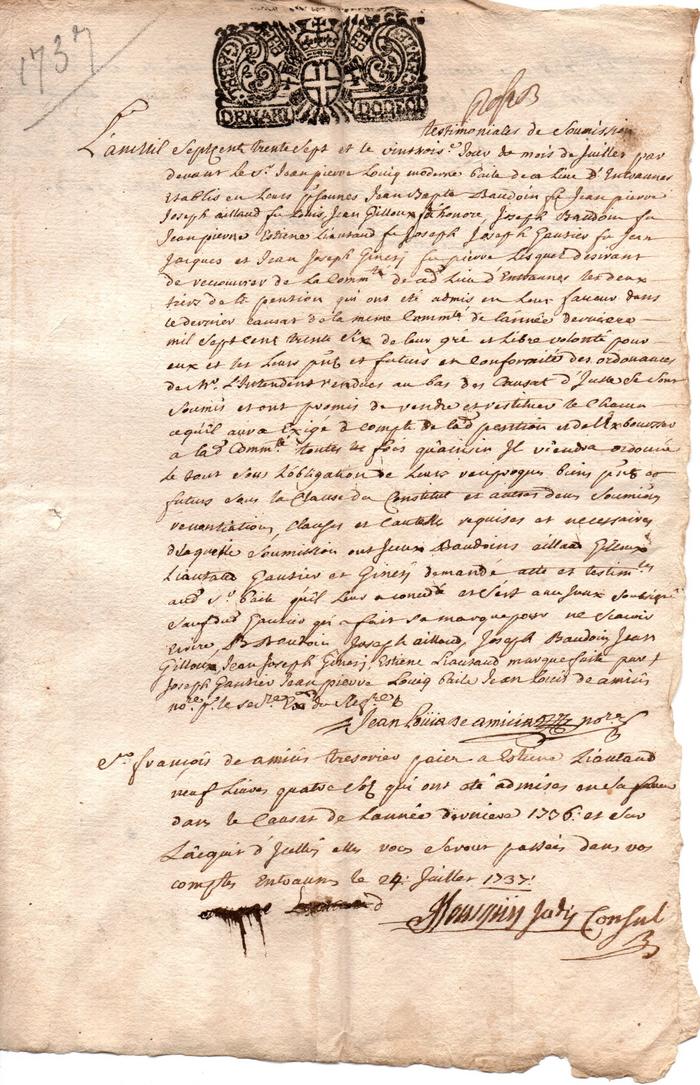 1737
GABEL
DENARI DODECI
testimoniales de Soumission
L'an mil Sept Cent trente Sept et le vint trois.e Jour du mois de Juillet par
devant le Sr. Jean pierre Louiq moderne baile de ce Lieu d'Entraunes
Establis en Leurs psonnes Jean Bapte Baudoin fu Jean pierre
Joseph aillaud fu Louis, Jean Gilloux d'honore, Joseph Baudoin fu
Jean pierre Estiene Liautaud fu Joseph Joseph Gautier fu Jean
Jacques et Jean Joseph Ginesj fu pierre Lesquels desirant
de recouvrer de La Comm.te de ced Lieu d'Entraunes les deux
tiers de la pention qui ont été admis en Leur faveur dans
le dernier Causat de la meme Comm.te de l'année derniere
mil Sept Cent trente Six de leur gré et Libre volonté pour
eux et les Leurs et futurs en Conformité des ordonances
de Mr. L'Intendent rendues au bas des Causat d'Julle Se Sont
Soumis et ont promis de rendre et restituer le Chacun
ce qu'il aura Exigé à compte de lad pention et de
a lad Comm.te toutes les fois qu'ainsin Jl viendra ordonné
Le tout Sous L'obligation de Leurs biens et
futurs Sous la Clause du Constitut et autres deus Soumions
renontiations, Clauses et Cautelle requises et necessaires
De laquelle Soumission ont Baudoins aillaud Gilloux
Liautaud Gautier et Ginesj demandé acte et testim.les
aud Sr. baile qu'il Leur a concedé et
Gautier qui a fait Sa marque pour ne Scavoir
Ecrire Baudoin Joseph aillaud, Joseph Baudoin Jean
Gilloux Jean Joseph Ginesj Estiene Liautaud marque faite par +
Joseph Gautier Jean pierre Louiq baile Jean Louis de amicis
no.re
Jean Loüis de amicis no.re
Sr. françois de amicis tresorier paier a Estiene Liautaud
neuf Livres quatre qui ont été admises en Sa faveur
dans le Causat de L'année derniere 1736: et Sur
L'acquit d'Jcelles elles vous Seront passées dans vos
comptes Entraunes le 24: Juillet 1737:
Consul